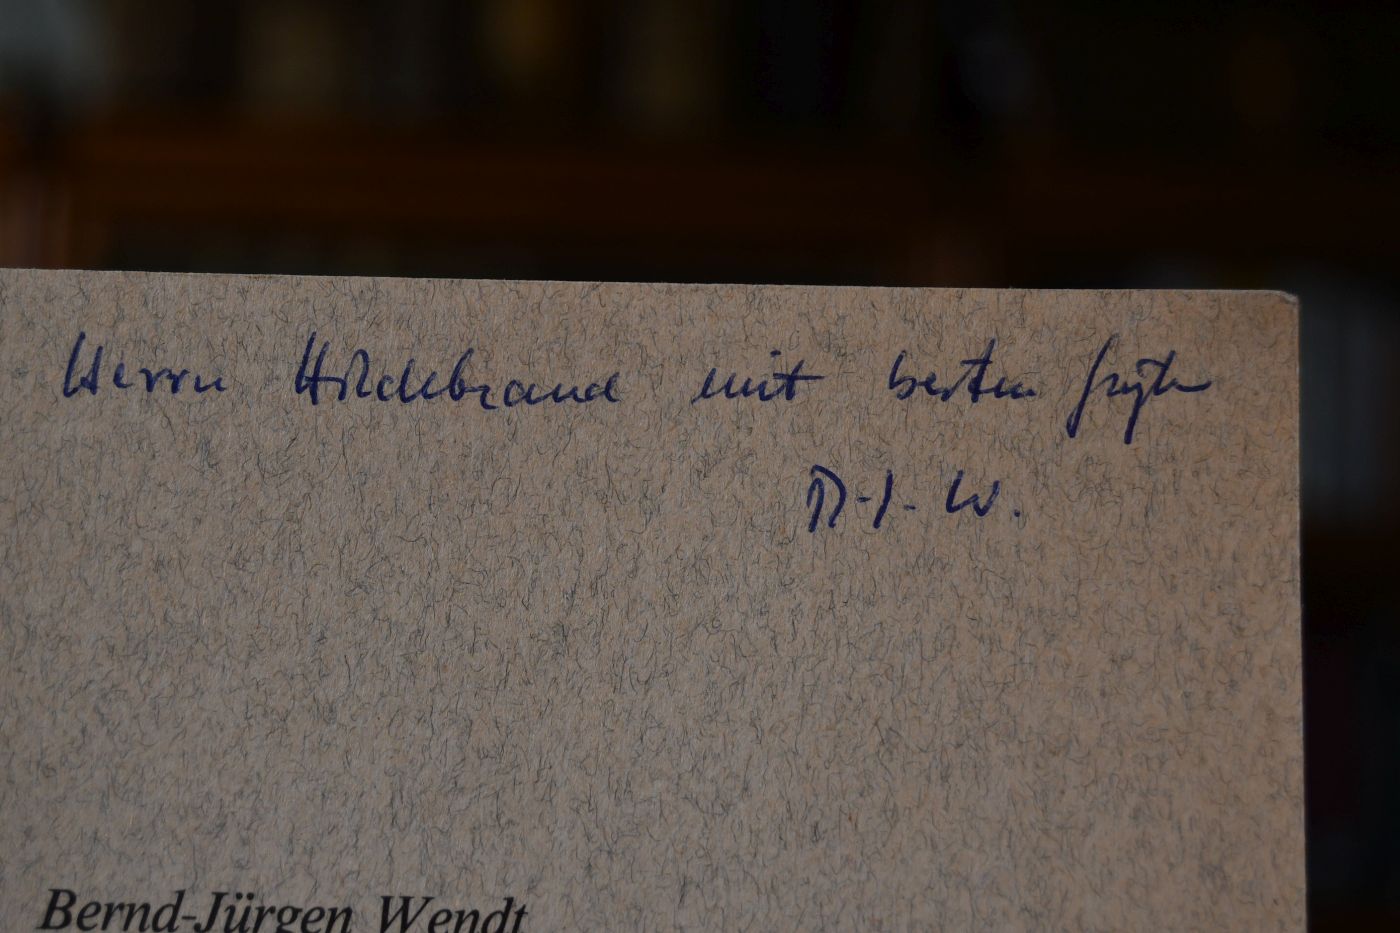 Herrn Hildebrand mit besten Grüßen
B.-J. W.
Bernd-Jürgen Wendt